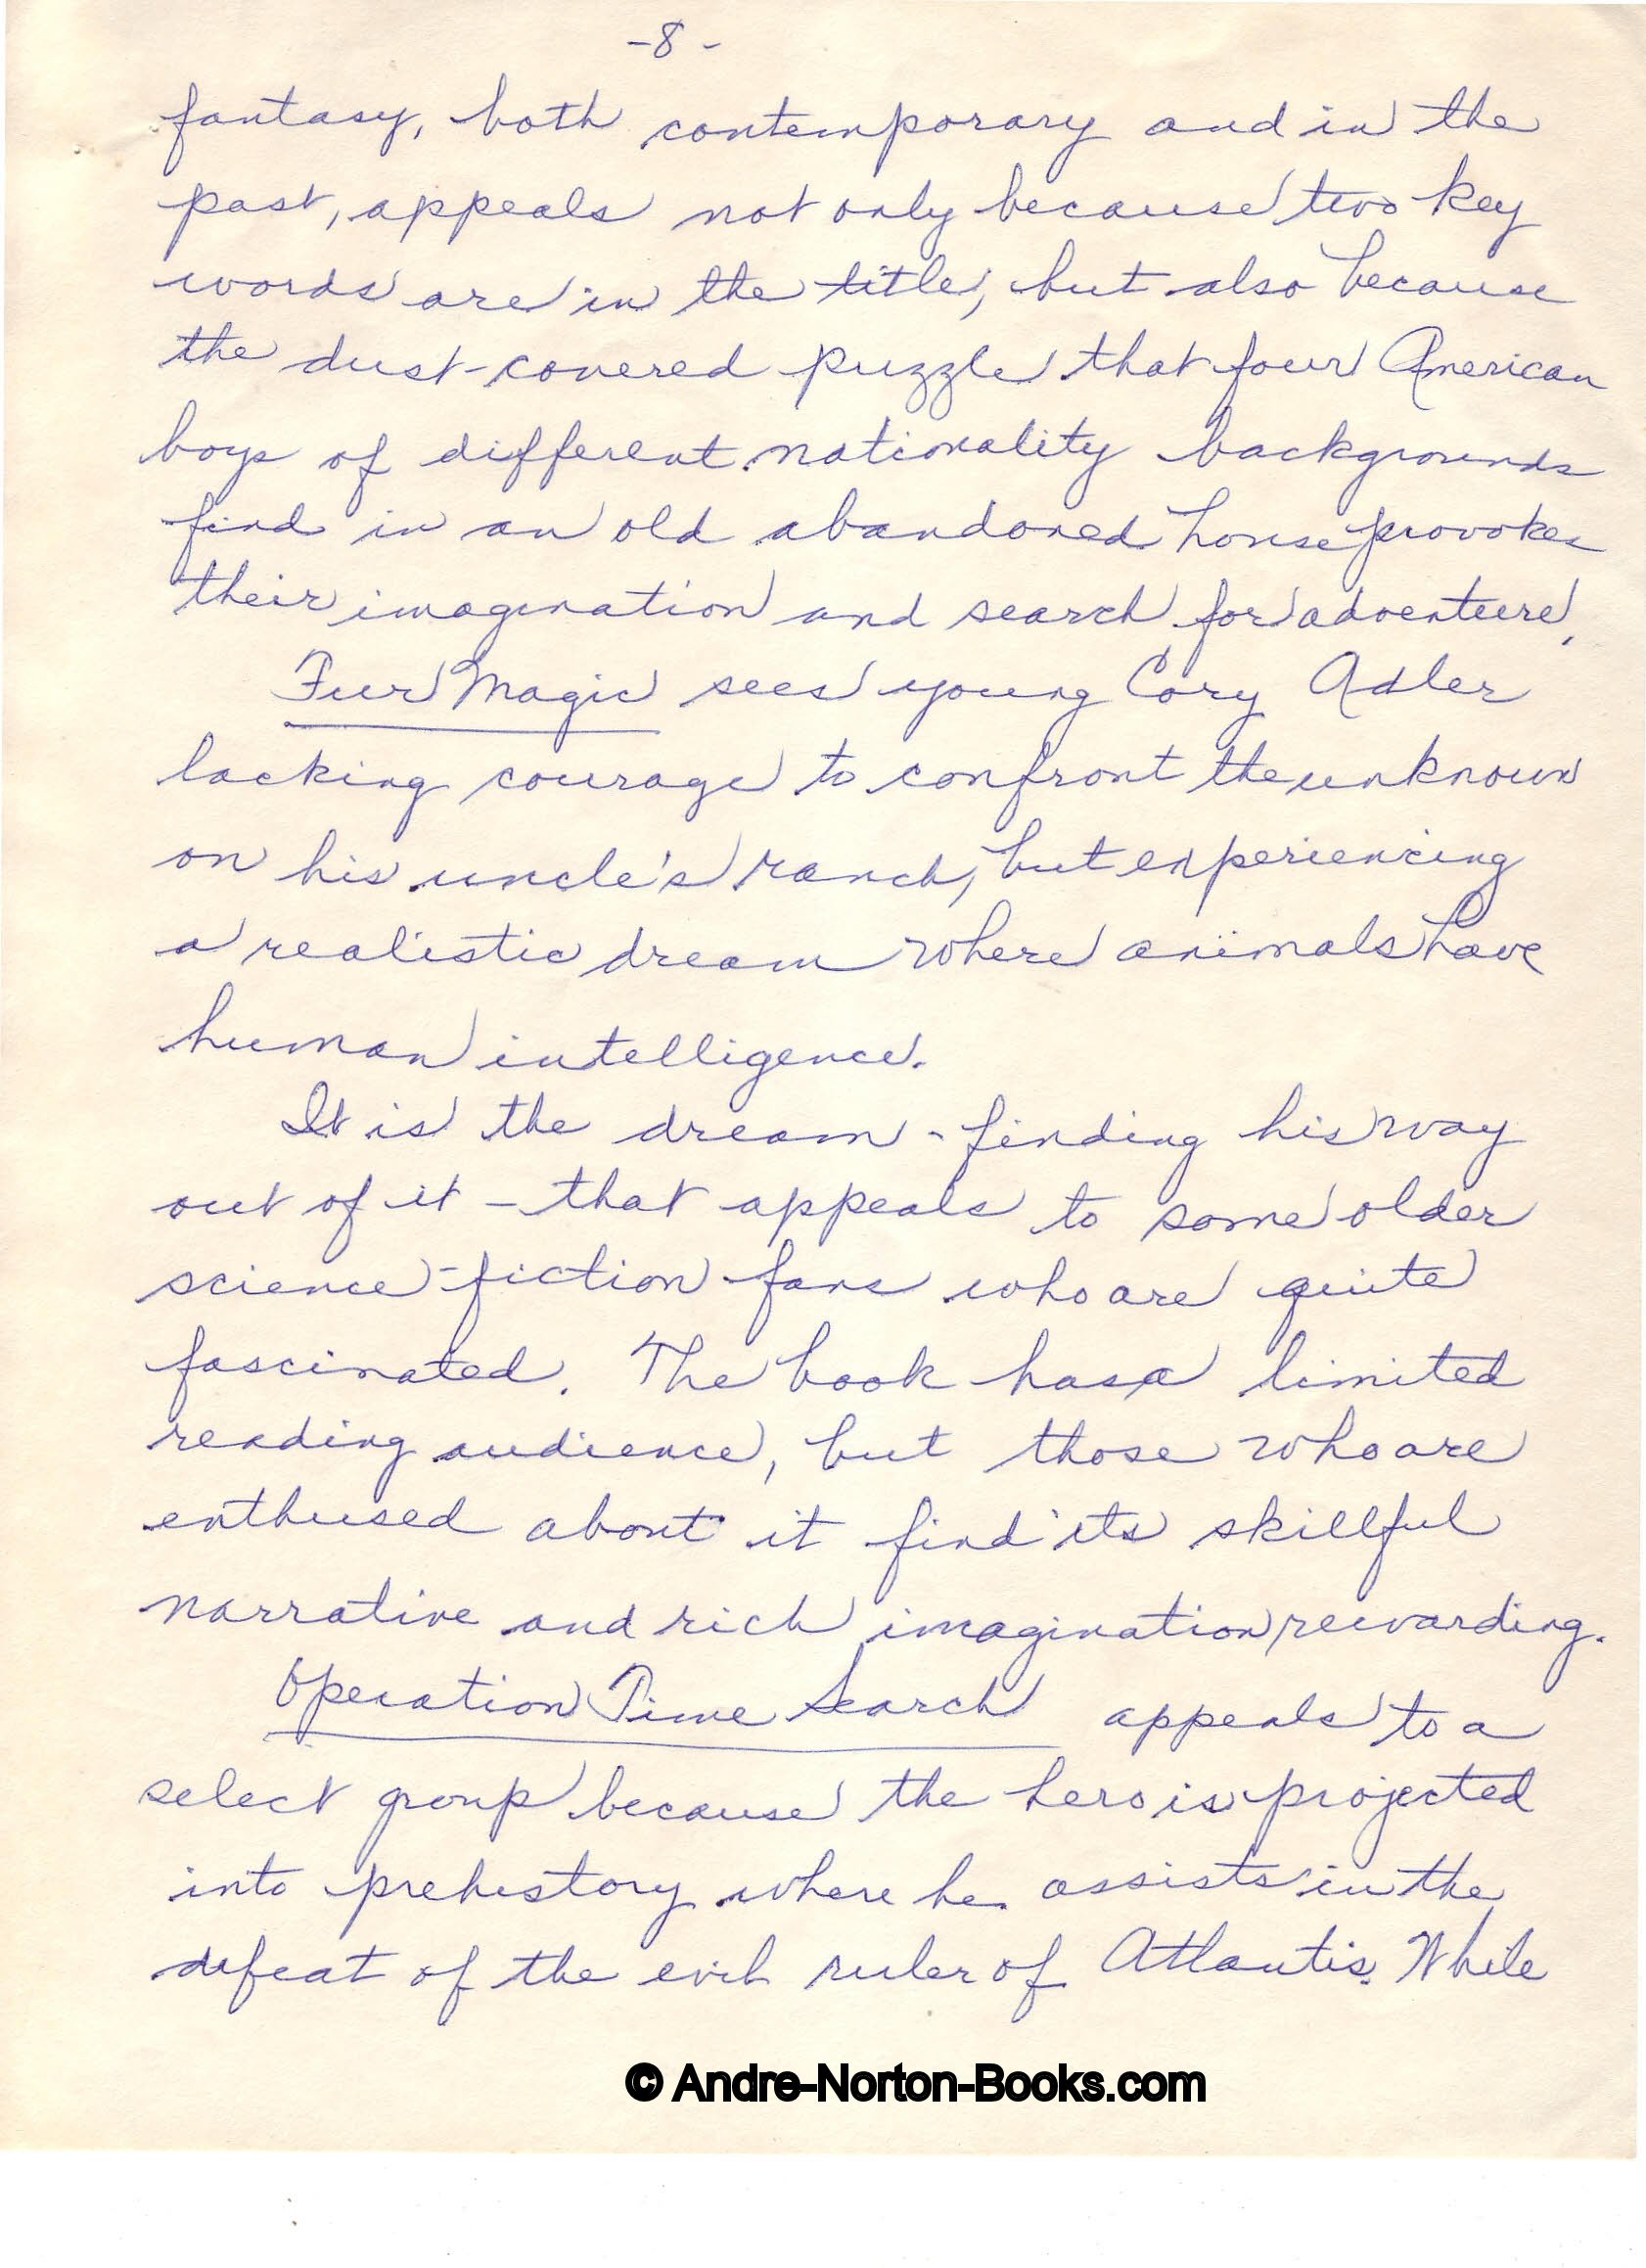 -8-
fantasy, both contemporary and in the
past, appeals not only because two key
words are in the title, but also because
the dust-covered puzzle that four American
boys of different nationality backgrounds
find in an old abandoned house provokes
their imagination and search for adventure.
Fur Magic sees young Cory Adler
lacking courage to confront the unknown
on his uncle's ranch, but experiencing
a realistic dream where animals have
human intelligence.
It is the dream - finding his way
out of it - that appeals to some older
science-fiction fans who are quite
fascinated. The book has a limited
reading audience, but those who are
enthused about it find its skillful
narrative and rich imagination rewarding.
Operation Time Search appeals to a
select group because the hero is projected
into prehistory where he assists in the
defeat of the evil ruler of Atlantis. While
© Andre-Norton-Books.com